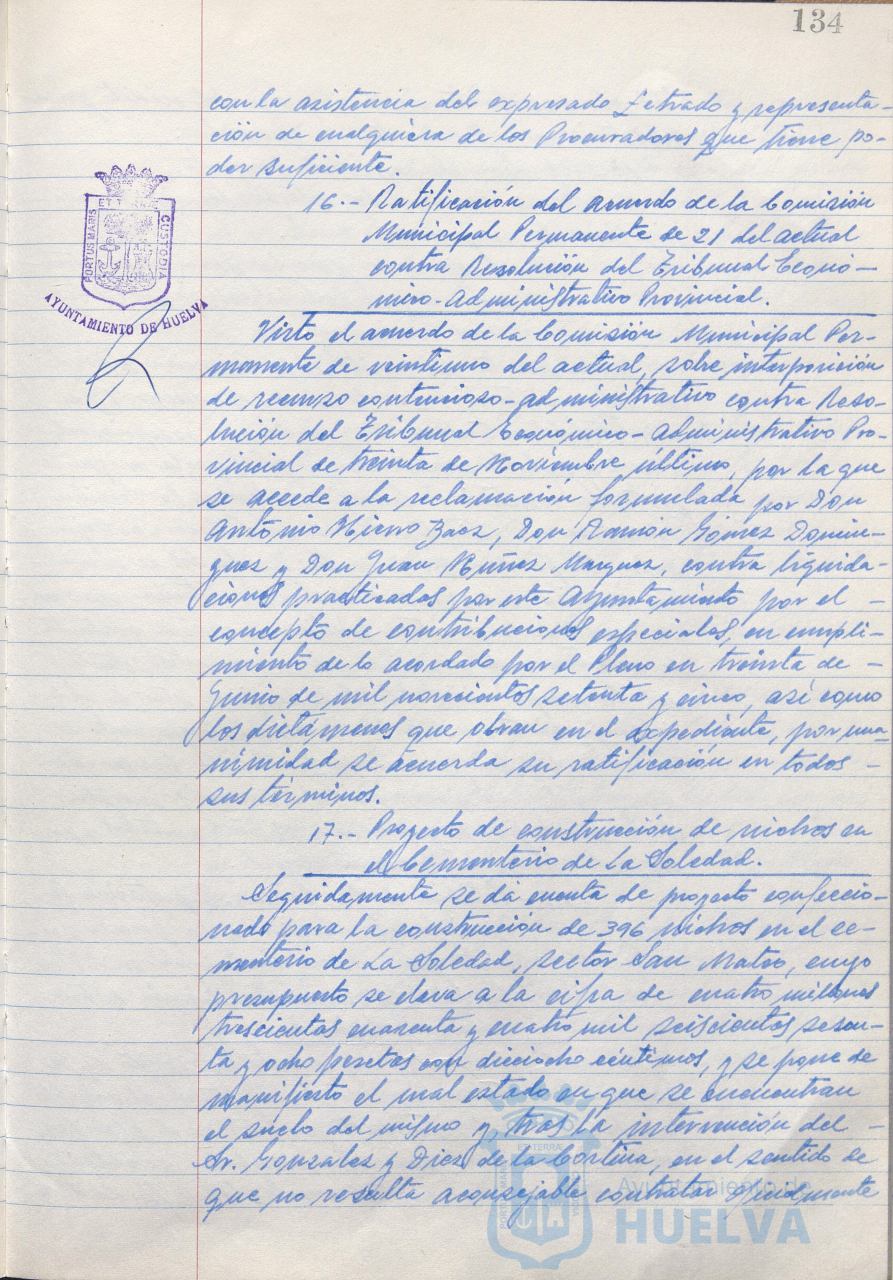 134
con la asistencia del expresado Letrado y representa-
ción de cualquiera de los Procuradores que tiene po-
der suficiente.
16.- Ratificación del acuerdo de la Comisión
Municipal Permanente de 21 del actual
contra Resolución del Tribunal Econó-
mico-Administrativo Provincial.
PORTUS MARIS ET TERRAE CUSTODIA
AYUNTAMIENTO DE HUELVA
Visto el acuerdo de la Comisión Municipal Per-
manente de veintiuno del actual, sobre interposición
de recurso contencioso-administrativo contra Reso-
lución del Tribunal Económico-Administrativo Pro-
vincial de treinta de Noviembre último, por la que
se accede a la reclamación formulada por Don
Antonio Hierro Baez, Don Ramón Gómez Domin-
guez y Don Juan Núñez Marquez, contra liquida-
ciones practicadas por este Ayuntamiento por el -
concepto de contribuciones especiales, en cumpli-
miento de lo acordado por el Pleno en treinta de -
Junio de mil novecientos setenta y cinco, así como
los dictámenes que obran en el expediente, por una-
nimidad se acuerda su ratificación en todos -
sus términos.
17.- Proyecto de construcción de nichos en
el Cementerio de La Soledad.
Seguidamente se dá cuenta de proyecto confeccio-
nado para la construcción de 396 nichos en el ce-
menterio de La Soledad, sector San Mateo, cuyo
presupuesto se eleva a la cifra de cuatro millones
trescientas cuarenta y cuatro mil seiscientas sesen-
ta y ocho pesetas con dieciocho céntimos, y se pone de
manifiesto el mal estado en que se encuentran
el suelo del mismo y, tras la intervención del -
Sr. Gonzalez y Diez de la Cortina, en el sentido de
que no resulta aconsejable contratar
ET TERRA
Ayuntamiento de
HUELVA